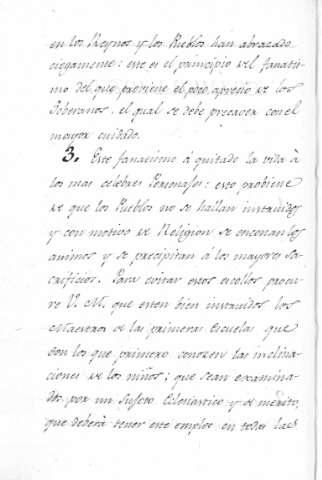 en los Reynos y los Pueblos han abrazado
ciegamente: este es el principio del fanatis
mo del que proviene el poco aprecio de los
Soberanos, el qual se debe precaver con el
mayor cuidado.
3. Este fanatismo á quitado la vida à
los mas celebres Personajes: esto probiene
de que los Pueblos no se hallan instruidos
y con motivo de Religion se enconan los
animos y se precipitan á los mayores sa-
crificios. Para evitar estos escollos procu-
re V. M. que esten bien instruidos los
Maestros de las primeras Escuelas que
son los que primero conocen las inclina
ciones de los niños; que sean examina-
dos por un sujeto Eclesiastico y de merito,
que deberà tener este empleo en todas las